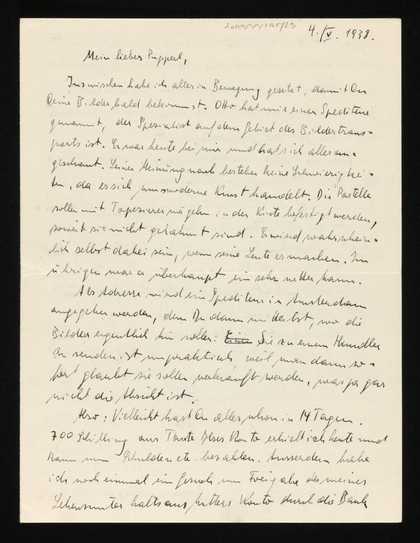 4./V. 1938.
Mein lieber Pupperl,
Inzwischen habe ich alles in Bewegung gesetzt, damit Du
Deine Bilder bald bekommst. Otto hat mir einen Spediteur
genannt, der Spezialist auf dem Gebiet des Bildertrans-
ports ist. Er war heute bei mir und hat sich alles an-
geschaut. Seiner Meinung nach bestehen keine Schwierigkei-
ten, da es sich um moderne Kunst handelt. Die Pastelle
sollen mit Tapezierernägeln in der Kiste befestigt werden,
somit sie nicht gerahmt sind. Er wird wahrschein-
lich selbst dabei sein, wenn seine Leute es machen. Im
übrigen war er überhaupt ein sehr netter Mann.
Als Adresse wird ein Spediteur in Amsterdam
angegeben werden, dem Du dann mitteilst, wo die
Bilder eigentlich hin sollen. Sie zu einem Händler
zu senden ist unpraktisch weil man dann so-
fort glaubt sie sollen verkauft werden, was ja gar
nicht die Absicht ist.
Also: Vielleicht hast Du alles schon in 14 Tagen.
700 Schilling aus Tante Konto erhielt ich heute und
kann nun Schulden etc. bezahlen. Ausserdem habe
ich noch einmal ein Gesuch um Freigabe meines
Lebensunterhalts aus Konto durch die Bank